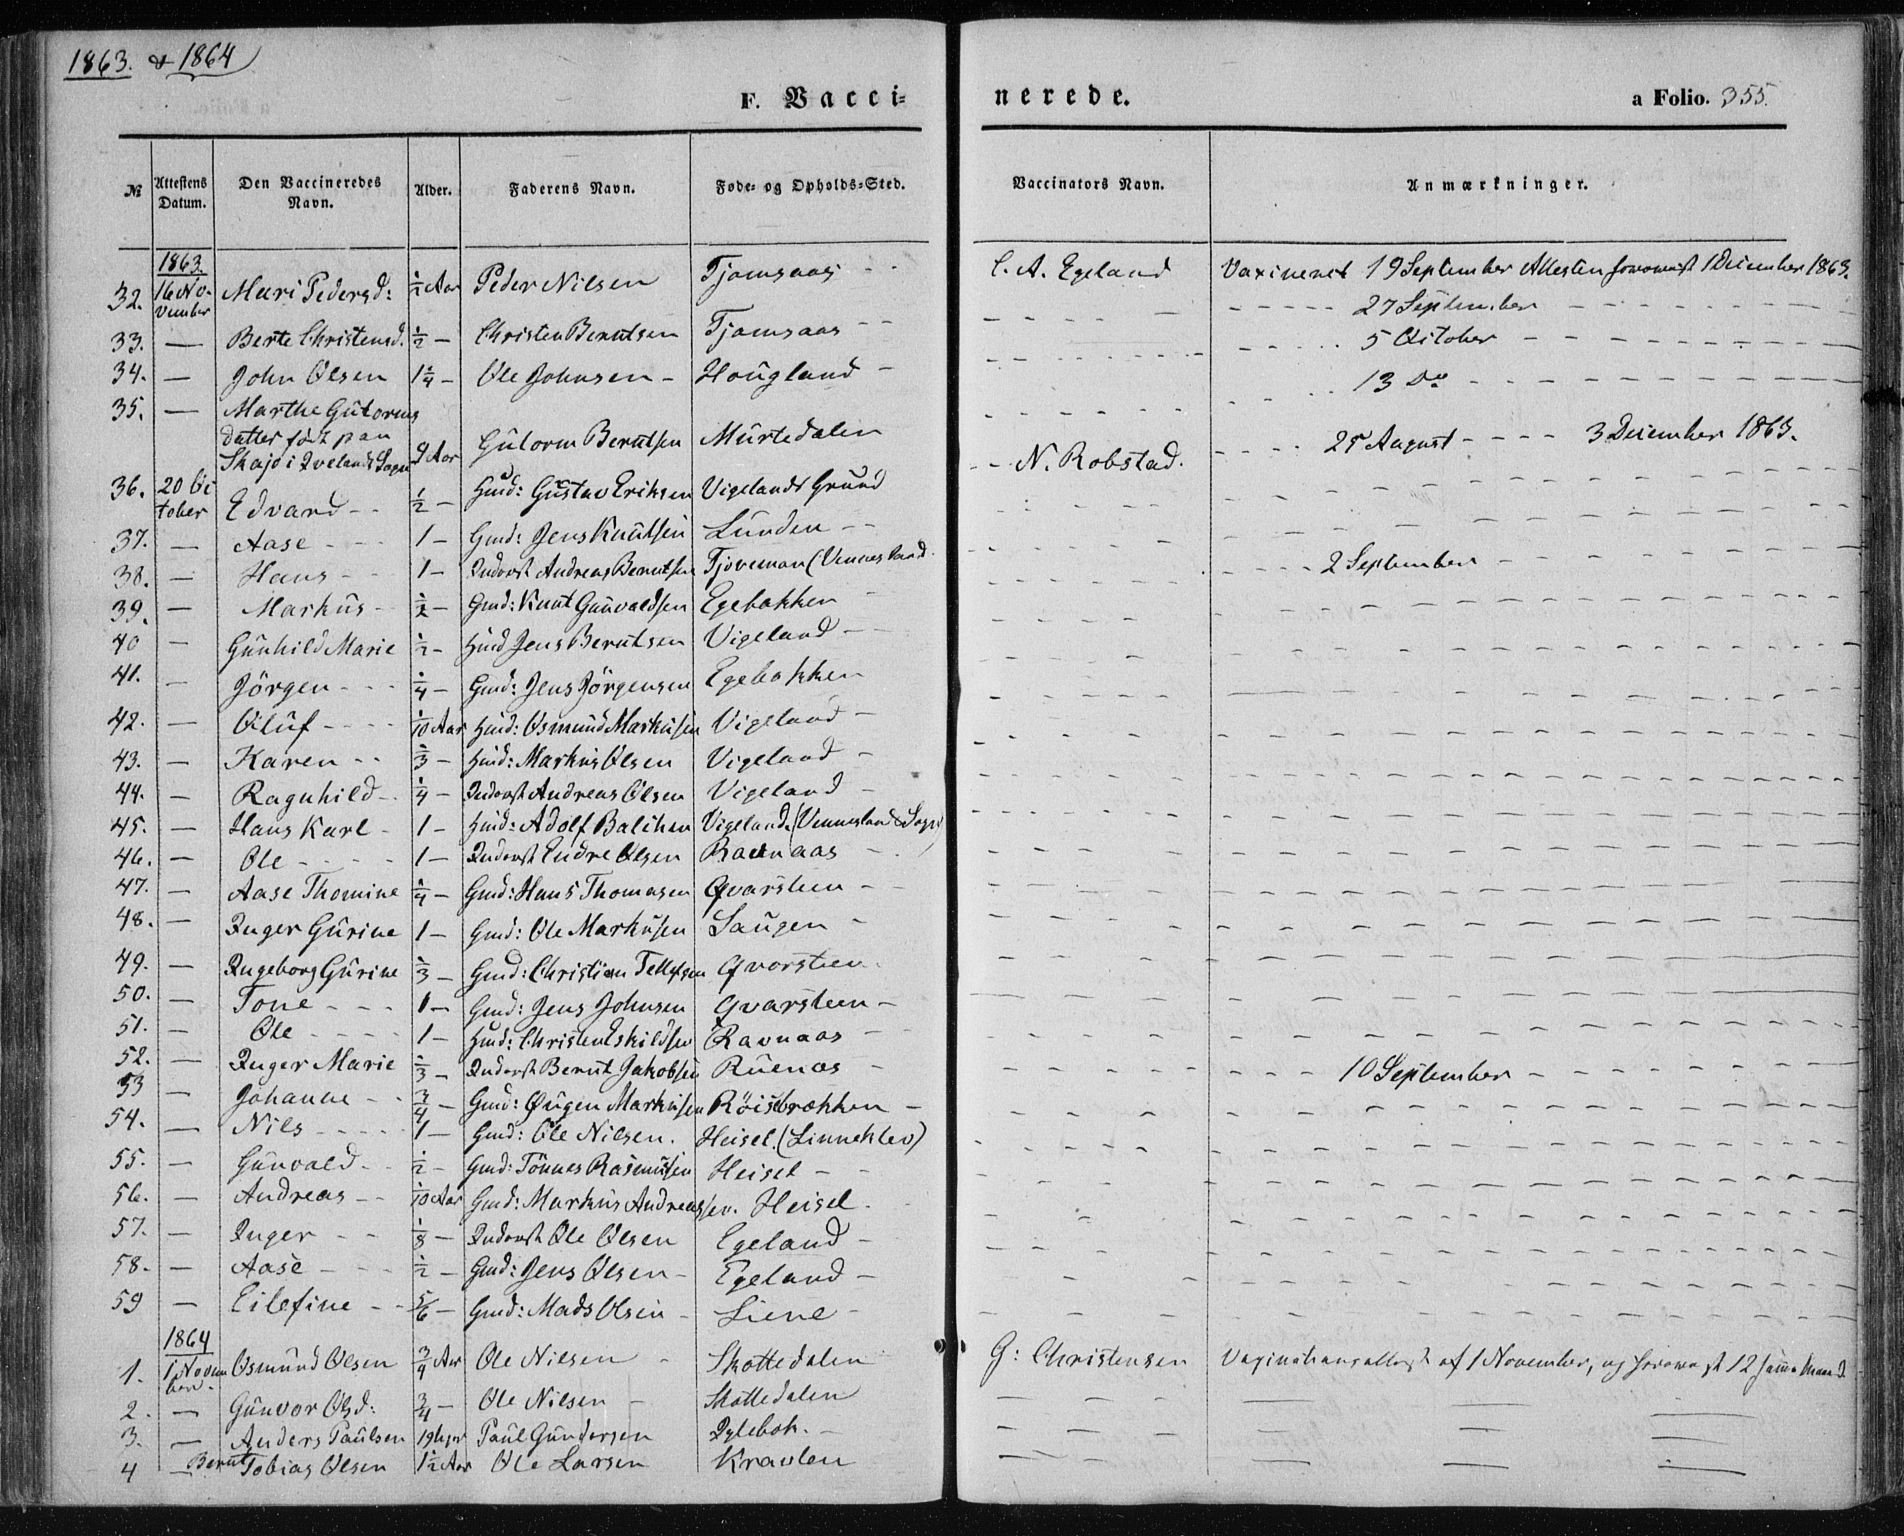 1863. & 1864
F. Vacci=
nerede.
a Folio. 355.
№ Attestens Datum. Den Vaccineredes Navn. Alder. Faderens Navn. Føde- og Opholds-Sted. Vaccinators Navn. Anmærkninger.
1863.
32. 16 No-vember Mari Pedersd: ½ Aar Peder Nilsen Tjomsaas - - C. A. Egeland Vaxineret 19 September Attesten forevist 1 December 1863.
33. — Berte Christensd. ½ — Christen Berntsen Tjomsaas - - 27 September
34. — John Olsen 1¼ — Ole Johnsen - Hougland - 5 October
35. — Marthe Gutorms 13 Do
datter født paa
Skajo i Ivelands Sogn 9 Aar Gutorm Berntsen Murtedalen - - N. Robstad. 25 August - - - - 3 December 1863.
36. 20 Oc-tober Edvard - - ½ — Hmd: Gustav Eriksen Vigelands Grund
37. — Aase - - - 1 — Gmd: Jens Knutsen Lunden - -
38. — Hans - - 1 — Inderst Andreas Berntsen Tjoveman (Vennesland 2 September
39. — Markus - ½ — Gmd: Knut Gunvaldsen Egebakken -
40 — Gunhild Marie ½ — Hmd Jens Berntsen Vigeland - -
41. — Jörgen - - - ¼ — Gmd: Jens Jörgensen Egebakken
42. — Oluf - - - - 1/10 Aar Hmd: Osmund Markusen Vigeland -
43. — Karen - - ⅓ — Hmd: Markus Olsen Vigeland -
44. — Ragnhild - - ¼ — Inderst Andreas Olsen Vigeland -
45. — Hans Karl - 1 — Hmd: Adolf Balchen Vigeland (Vennesland Sogn)
46. — Ole - - - - 1 — Inderst Endre Olsen Ravnaas -
47. — Aase Thomine ¼ — Gmd: Hans Thomasen Qvarsteen - -
48. — Inger Gurine 1 — Gmd: Ole Markusen Saugen -
49. — Ingeborg Gurine ⅓ — Gmd: Christian Tellefsen Qvarsteen
50. — Tone - - - 1 — Gmd: Jens Johnsen Qvarsteen -
51. — Ole - - - - 1 — Hmd: Christen Eskildsen Ravnaas -
52. — Inger Marie ⅔ — Inderst Bernt Jakobsen Ruenas - 10 September
53 — Johanne - - ¾ — Gmd: Ougen Markusen Röisbrækken -
54. — Nils - - - - 1 — Gmd: Ole Nilsen. Heisel. (Linneklev)
55. — Gunvald - - ½ — Gmd: Tönnes Rasmusen Heisel - -
56. — Andreas - - 1/10 Aar Gmd: Markus Andreassen. Heisel.
57. — Inger - - ⅛ — Inderst Ole Olsen Egeland -
58. — Aase - - - ½ — Gmd: Jens Olsen - Egeland -
59 — Eilefine - - 5/6 — Gmd: Mads Olsen - Liene -
1864
1. 1 Novem-ber. Osmund Olsen ¾ Aar Ole Nilsen - Skottedalen G: Christensen Vaxinationsattest af 1 November, og forevist 12 samme Maaned
2. — Gunvor Olsd: ¾ — Ole Nilsen - Skottedalen
3. — Anders Paulsen Paul Gundersen
4 — Bernt Tobias Olsen 1½ Aar Ole Larsen Kravlen